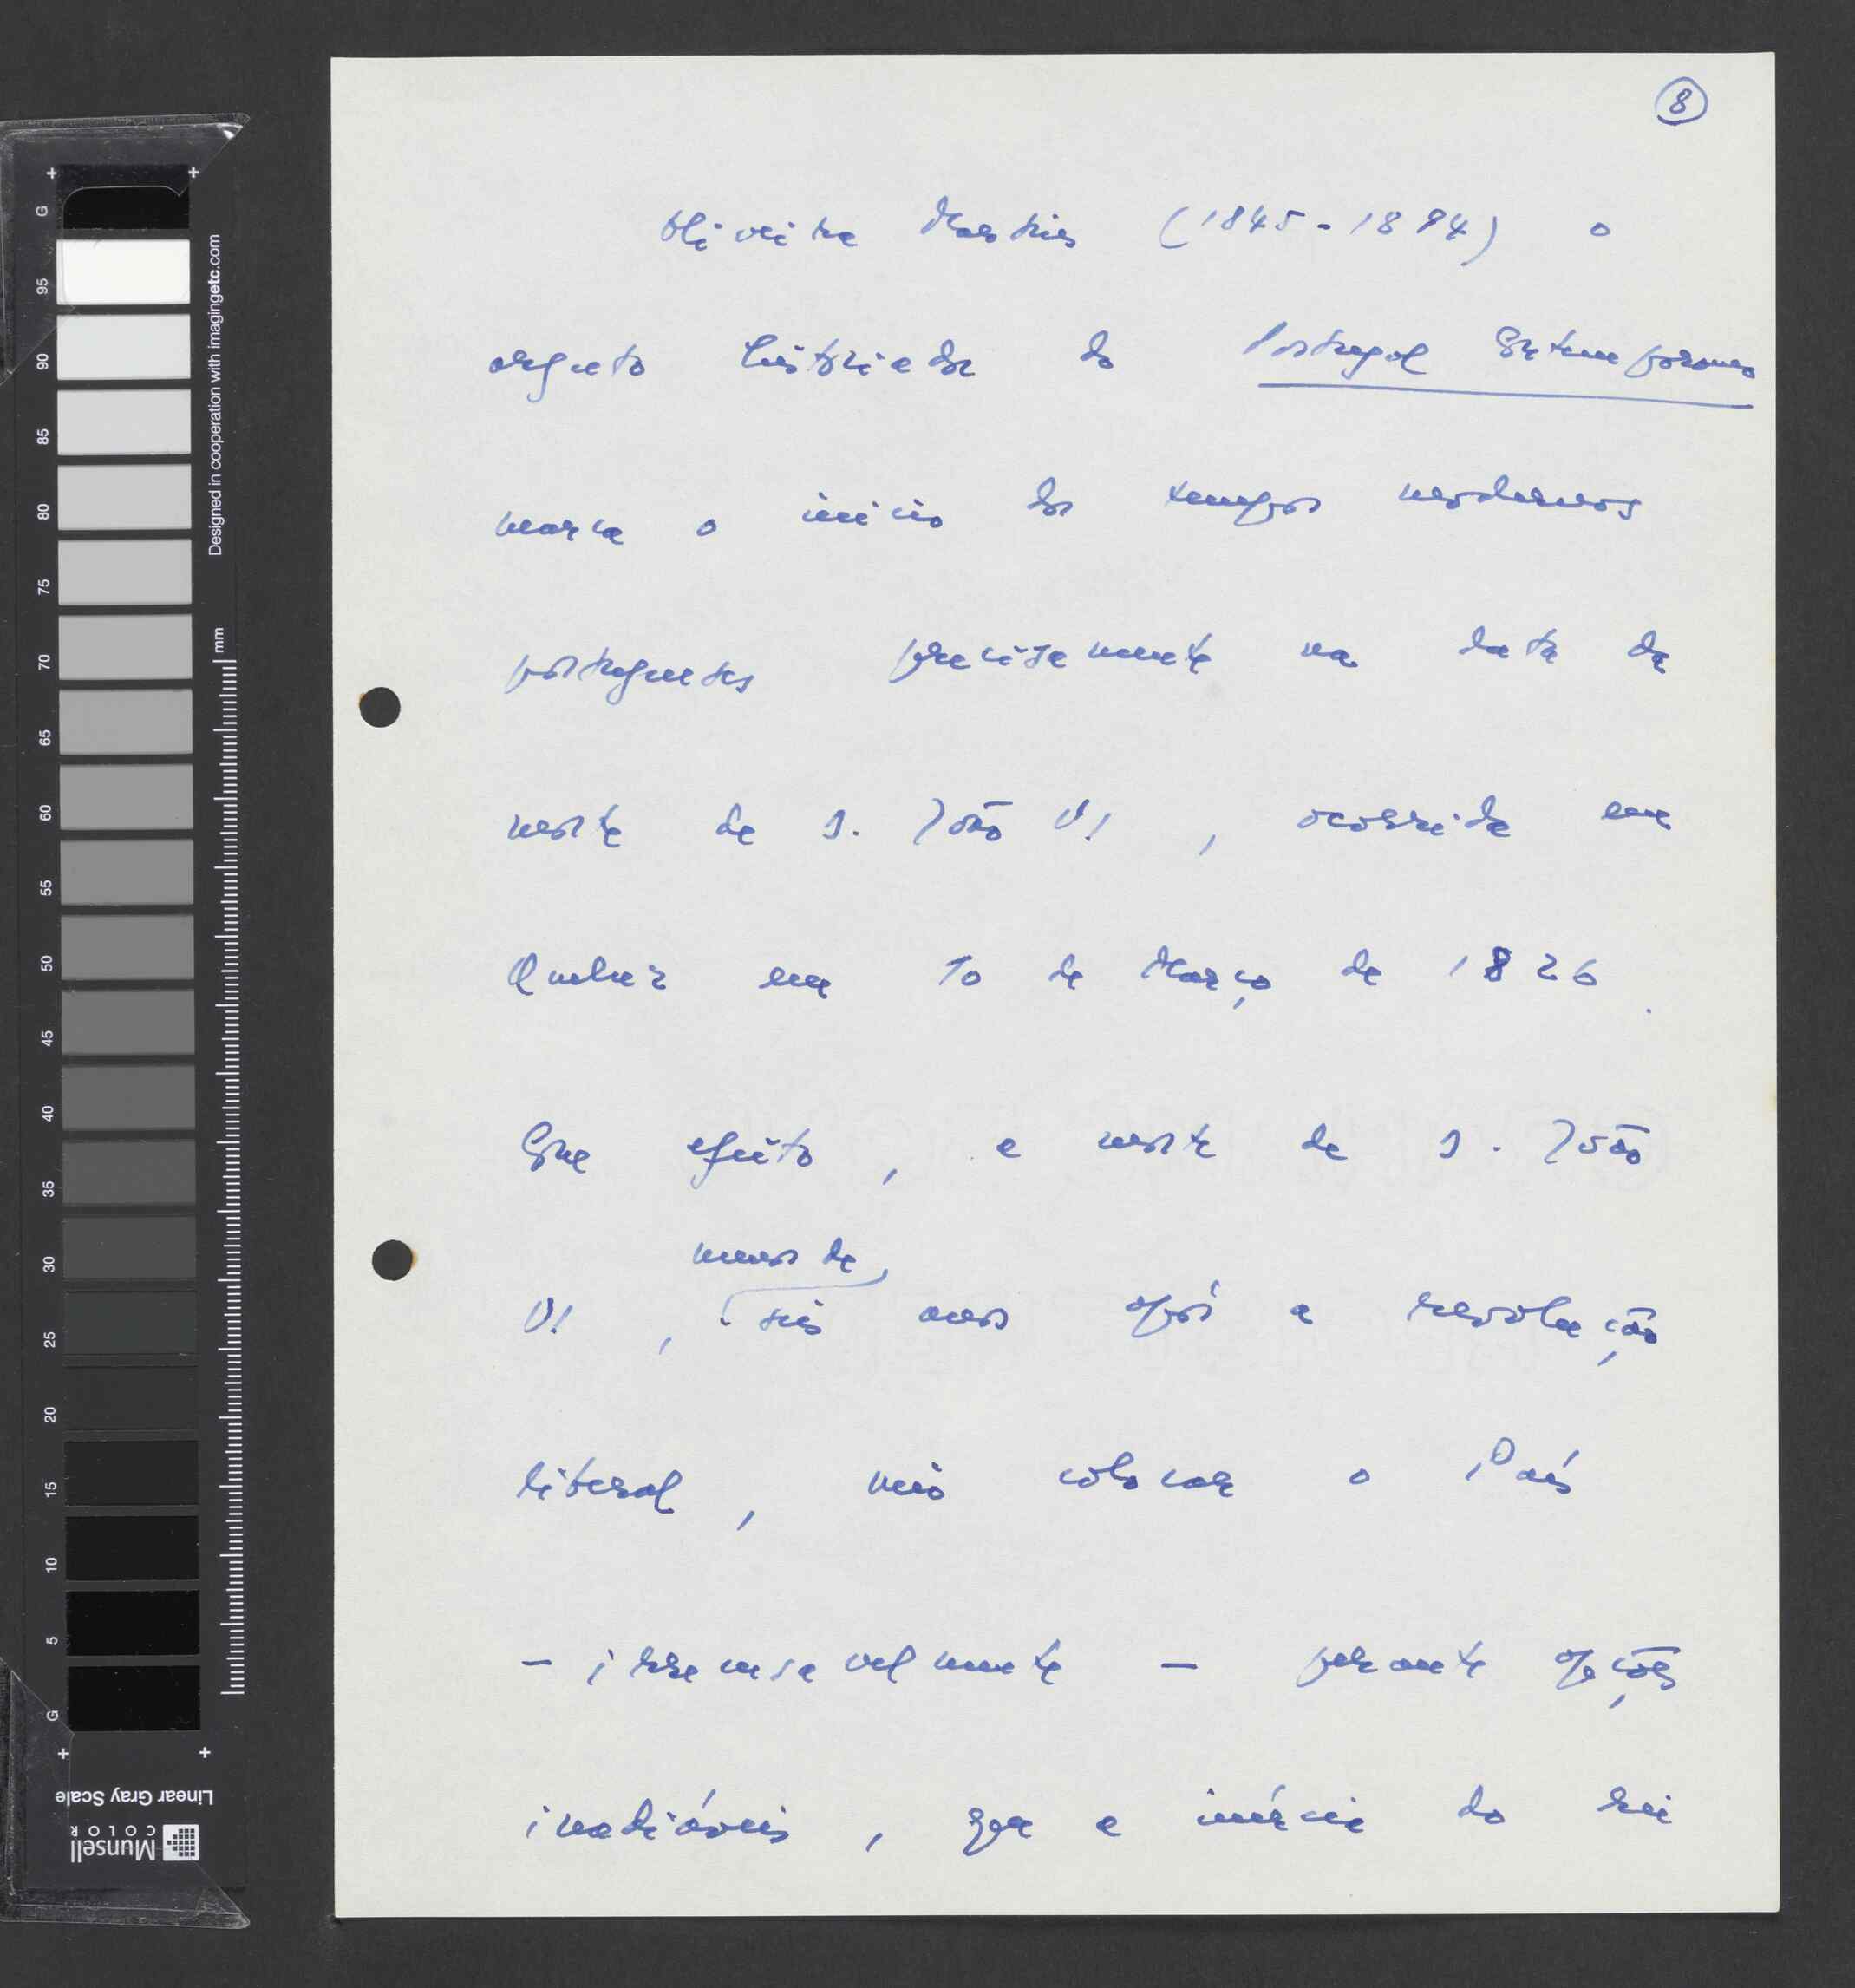 8
Oliveira Martins (1845-1894) o
arguto historiador do Portugal Contemporaneo
marca o início dos tempos modernos
portugueses precisamente na data da
morte de D. João VI, ocorrida em
Queluz em 10 de Março de 1826.
Com efeito, a morte de D. João
menos de
VI, seis anos após a revolução
liberal, veio colocar o País
- irrecusavelmente - perante opções
inadiáveis, que a inércia do rei
+ +
G 95 90 85 80 75 70 65 60 55 50 45 40 35 30 25 20 15 10 5 G
+ +
Designed in cooperation with imagingetc.com
mm
Linear Gray Scale
Munsell
COLOR